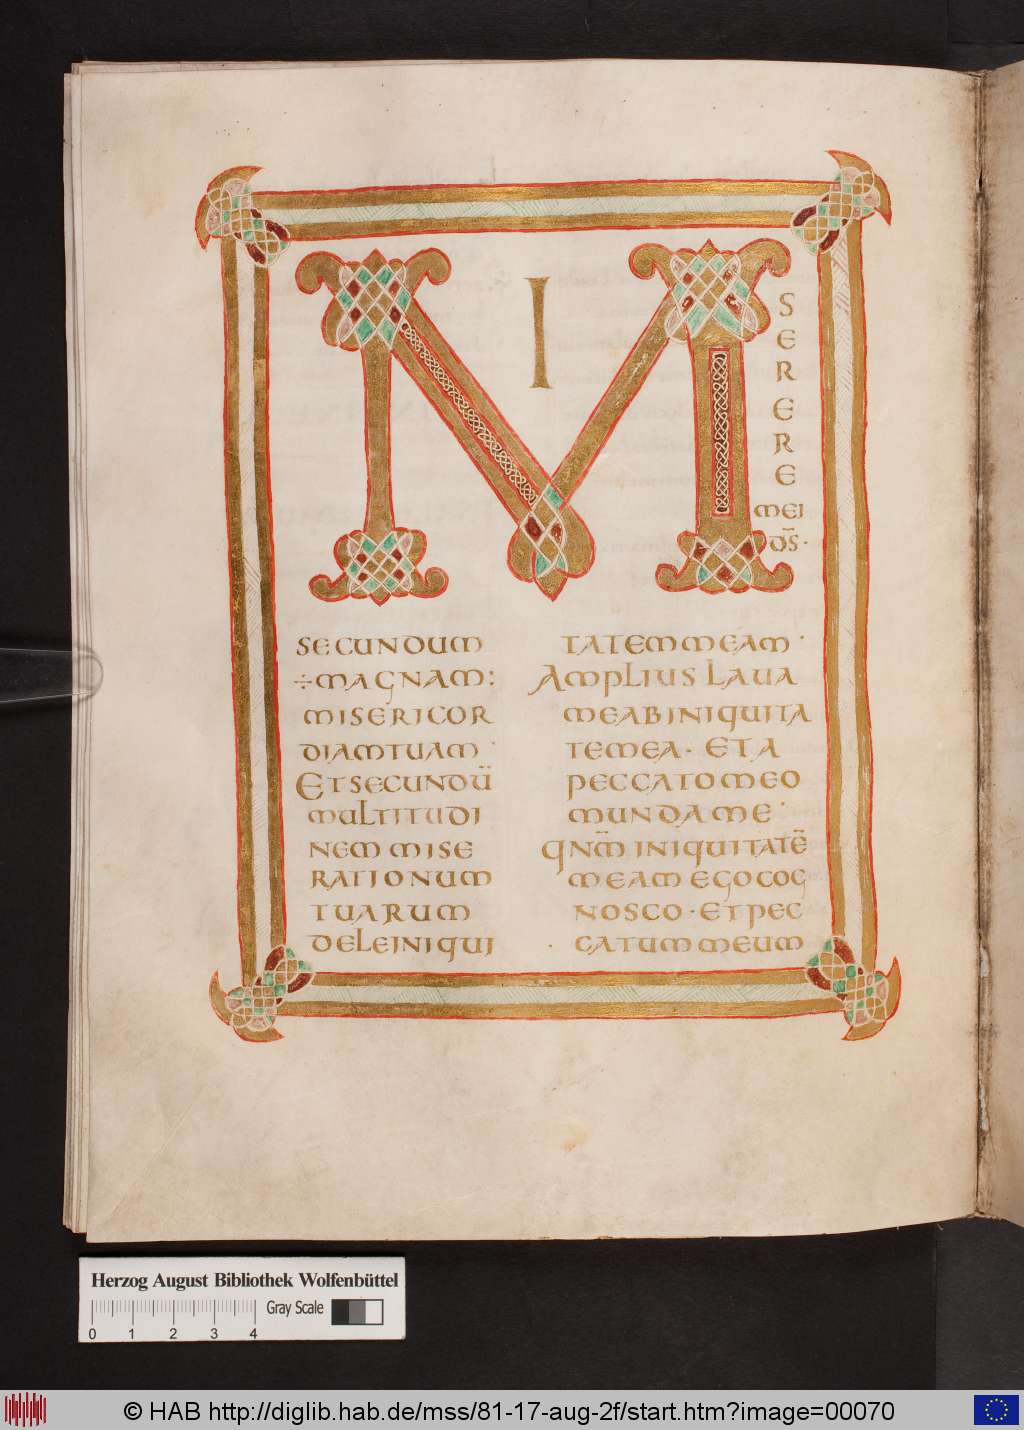 M
I
SERERE
MEI
DS̄·
SECUNDUM
÷MAGNAM:
MISERICOR
DIAM TUAM·
ET SECUNDŪ
MULTITUDI
NEM MISE
RATIONUM
TUARUM
DELE INIQUI
TATEM MEAM·
AMPLIUS LAUA
ME AB INIQUITA
TE MEA· ET A
PECCATO MEO
MUNDA ME·
QNM̄ INIQUITATĒ
MEAM EGO COG
NOSCO· ET PEC
· CATUM MEUM
Herzog August Bibliothek Wolfenbüttel
Gray Scale
0 1 2 3 4
© HAB http://diglib.hab.de/mss/81-17-aug-2f/start.htm?image=00070